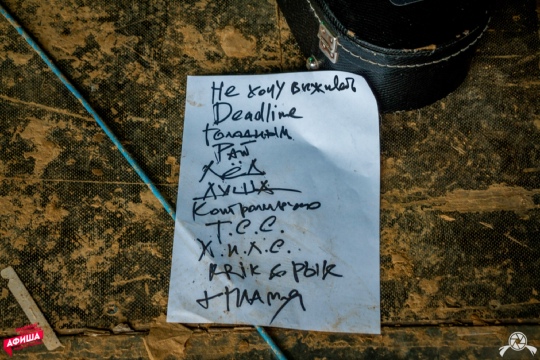 Не хочу выживать
Deadline
Голодным
Рай
Лёд
Душа
Контрольно
Т.С.С.
Х.И.Л.С.
Крик & Рык
+ Пламя
АФИША